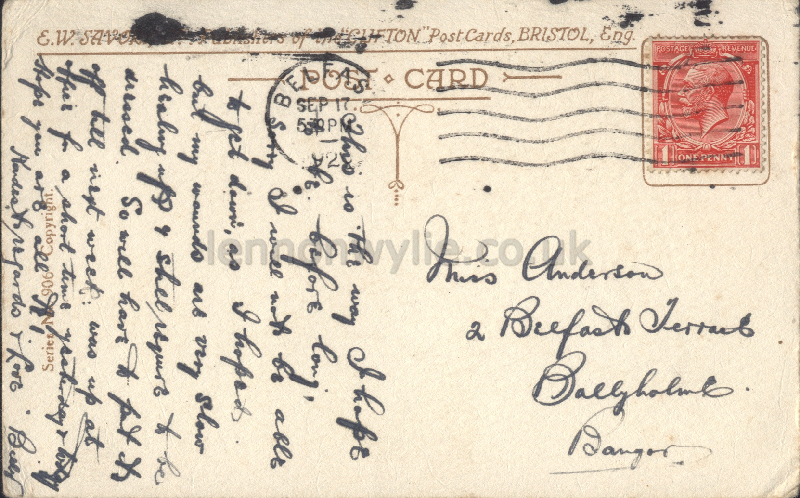 E.W. SAVORY, Publishers of the "CLIFTON" Post Cards, BRISTOL, Eng.
POST CARD
BELFAST
SEP 17
5 PM
192
POSTAGE REVENUE
1 ONE PENNY 1
Series No. 906 Copyright.
lennonwylie.co.uk
Miss Anderson
2 Belfast Terrace
Ballyholme
Bangor
This is the way I hope
to be before long,
Sorry I will not be able
to get down, as I hoped
but my wounds are very slow
healing up & still require to be
dressed So will have to put it
off till next week. was up at
for a short time yesterday & today
Hope you are all
Kindest regards & Love. Billy